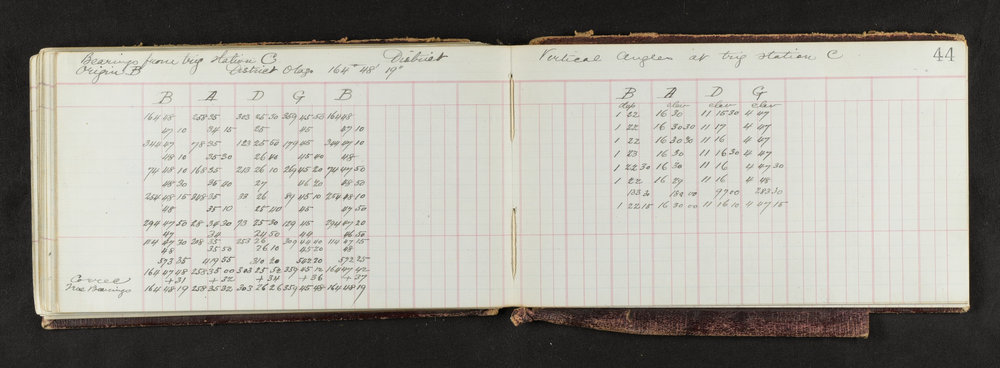 Bearings from trig station C District
Origin B District Otago 164° 48' 19"
B A D G B
164 48 258 35 303 25 30 359 45 50 164 48
47 10 34 15 25 45 47 10
344 47 78 35 123 25 50 179 45 344 47 10
48 10 35 30 26 40 45 40 48
74 48 10 168 35 213 26 10 269 45 20 74 47 50
48 30 35 40 27 46 20 48 50
254 48 15 348 35 33 26 89 45 10 254 48 10
48 35 10 25 40 45 47 50
294 47 50 28 34 30 73 25 30 129 45 294 47 20
47 34 24 50 44 46 50
114 47 30 208 35 253 26 309 44 40 114 47 15
48 35 50 26 10 45 20 48
573 35 419 55 310 20 542 20 572 25
164 47 48 258 35 00 303 25 52 359 45 12 164 47 42
Correc +31 +32 +34 +36 +37
True Bearings 164 48 19 258 35 32 303 26 26 359 45 48 164 48 19
Vertical Angles at trig station C 44
B A D G
dep elev elev elev
1 22 16 30 11 15 30 4 47
1 22 16 30 30 11 17 4 47
1 22 16 30 30 11 16 4 47
1 23 16 30 11 16 30 4 47
1 22 30 16 30 11 16 4 47 30
1 22 16 29 11 16 4 48
133 30 180 00 97 00 283 30
1 22 15 16 30 00 11 16 10 4 47 15